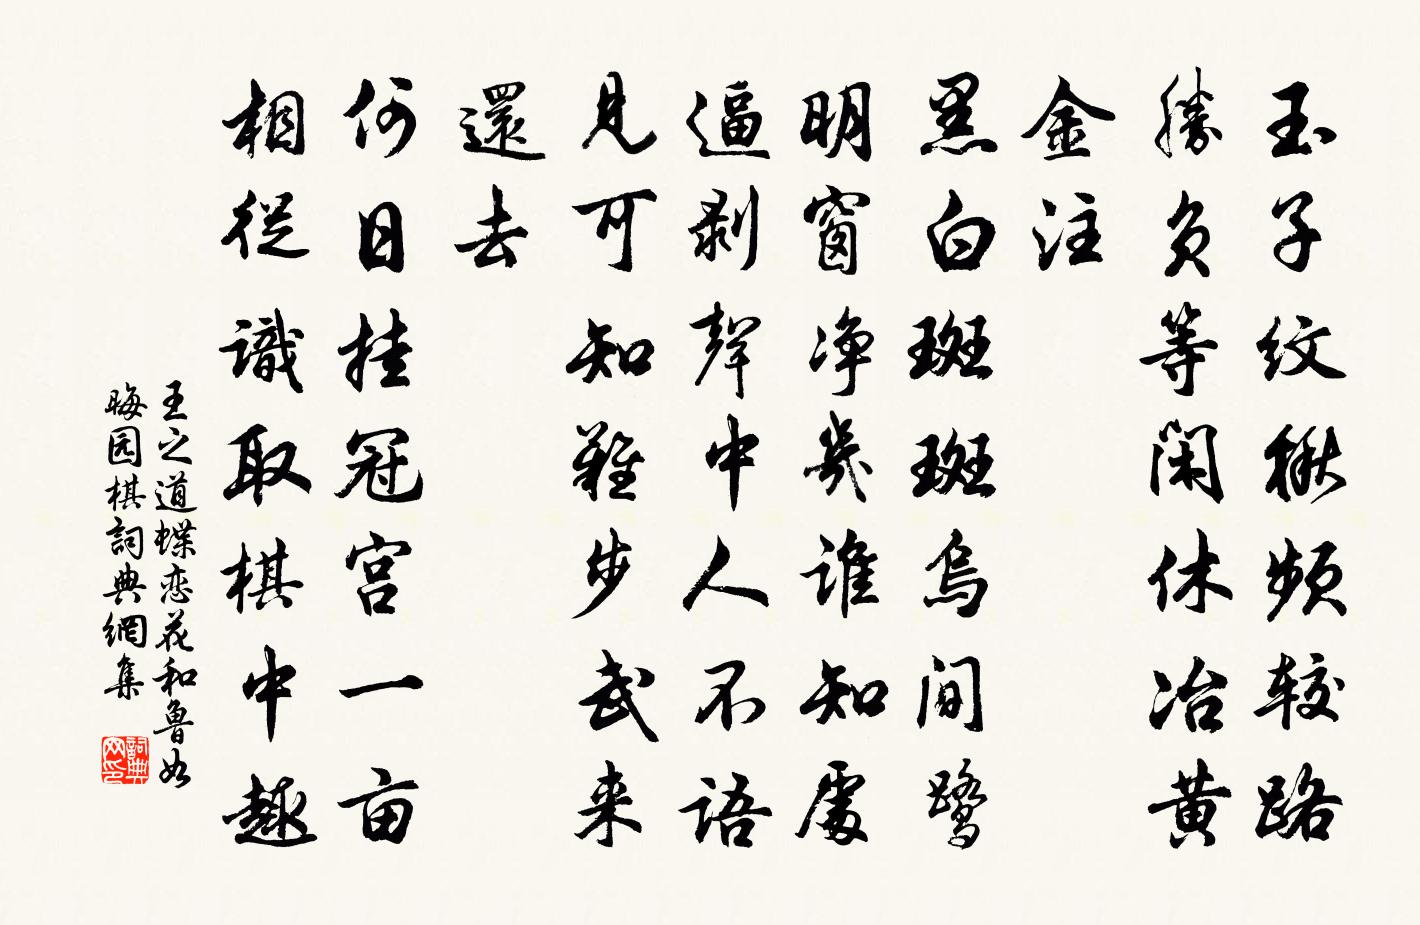 玉子纹楸频较路
勝负等闲休冶黄
金注
黑白斑斑烏间鹭
明窗净几谁知處
逼剥聲中人不语
見可知難步武来
還去
何日挂冠宫一亩
相從識取棋中趣
王之道蝶恋花和鲁如
晦园棋詞典網集
詞典
网